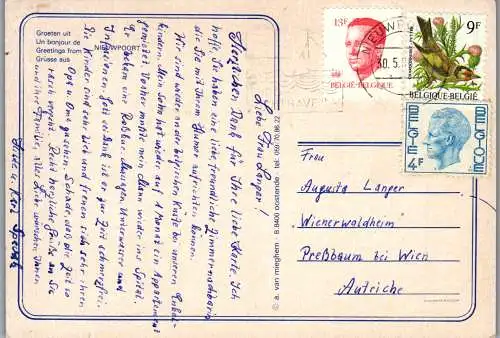 Groeten uit
Un bonjour de
Greetings from
Grüsse aus
NIEUWPOORT
Liebe Frau Langer!
Herzlichen Dank für Ihre liebe Karte. Ich
hoffe, Sie haben eine liebe, freundliche Zimmernachbarin
die Sie mit Ihrem Humor aufrichten können.
Wir sind wieder an der belgischen Küste bei unseren Enkel-
kindern. Mein Sohn hat wieder auf 1 Monat ein Appartement
gemietet. Vorher mußte mein Mann wieder ins Spital.
Er bekam eine Massagen, Unterwasser und
Infusionen. Gott sei Dank ist er zur Zeit schmerzfrei.
Die Kinder sind sehr lieb und freuen sich sehr ihren
Opa u. Oma zu sehen. Schade, daß die Zeit so
rasch vergeht. Recht herzliche Grüße an Sie
und Ihre Familie, alles Liebe wünschen Ihnen
u. Karl
a. van mieghem B 8400 oostende tel. 059/70.86.22
13F
BELGIE-BELGIQUE
NIEUWP
30.5.
9F
BELGIË-BELGIQUE
BELGIE
BELGIQUE
4F
Frau
Augusta Langer
"Wienerwaldheim"
Preßbaum bei Wien
Autriche